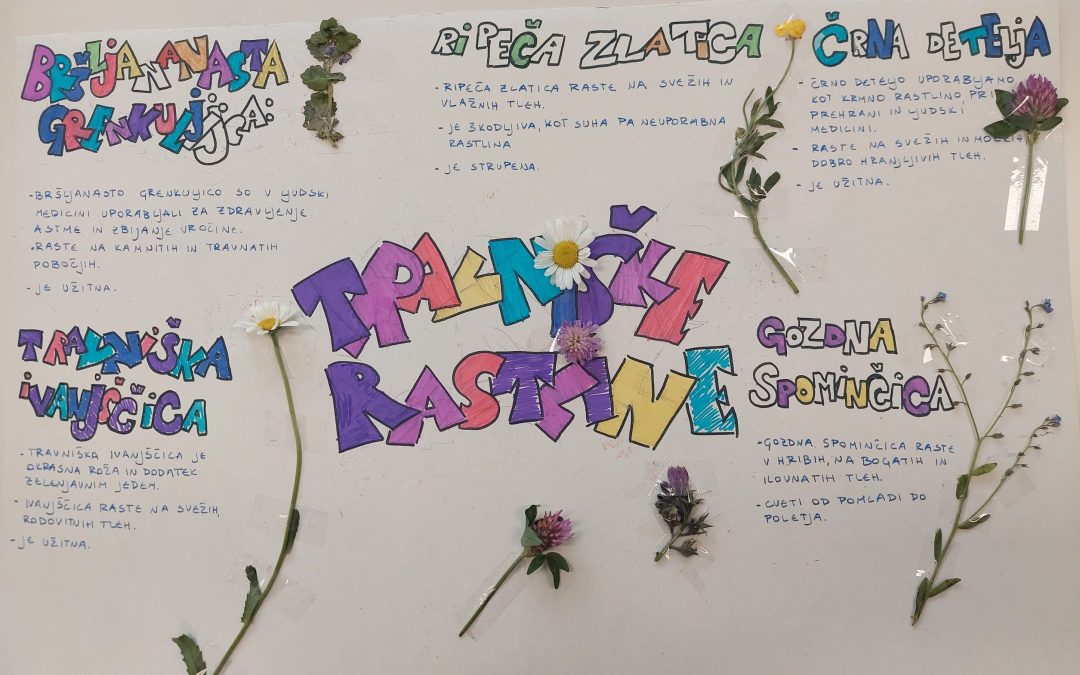 BRŠLJANANASTA
GRENKULJICA:
-BRŠLJANASTO GRENKULJICO SO V LJUDSKI
MEDICINI UPORABLJALI ZA ZDRAVLJENJE
ASTME IN ZBIJANJE VROČINE.
-RASTE NA KAMNITIH IN TRAVNATIH
POBOČJIH.
- JE UŽITNA.
RIPEČA ZLATICA
- RIPEČA ZLATICA RASTE NA SVEŽIH IN
VLAŽNIH TLEH.
- JE ŠKODLJIVA, KOT SUHA PA NEUPORMBNA
RASTLINA
- JE STRUPENA.
ČRNA DETELJA
- ČRNO DETELJO UPORABLJAMO
KOT KRMNO RASTLINO PRI
PREHRANI IN LJUDSKI
MEDICINI.
- RASTE NA SVEŽIH IN
DOBRO HRANJLJIVIH TLEH.
- JE UŽITNA.
TRAVNIŠKE
RASTLINE
TRAVNIŠKA
IVANJŠČICA
- TRAVNIŠKA IVANJŠČICA JE
OKRASNA ROŽA IN DODATEK
ZELENJAVNIM JEDEM.
- IVANJŠČICA RASTE NA SVEŽIH,
RODOVITNIH TLEH.
- JE UŽITNA.
GOZDNA
SPOMINČICA
-GOZDNA SPOMINČICA RASTE
V HRIBIH, NA BOGATIH IN
ILOVNATIH TLEH.
- CVETI OD POMLADI DO
POLETJA.